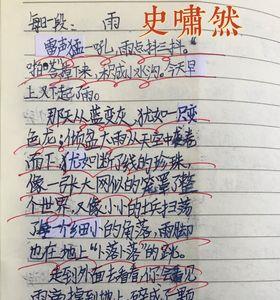 史嘯然
每日一段： 雨
雷声猛一吼，雨点抖三抖。
啪答掉下来，积成小水沟。今天早
上又下起了雨。
那天从蓝变灰，犹如一只变
色龙；倾盆大雨从天空中袭卷
而下，犹如断了线的珍珠，
像一张大网似的笼罩了整
个世界，又像小小的士兵扫荡
了每一个细小的角落，雨脚
也在地上“卜落卜落”的跳。
走到外面去看看，你会看见
雨滴撞到地上，碎成了颗